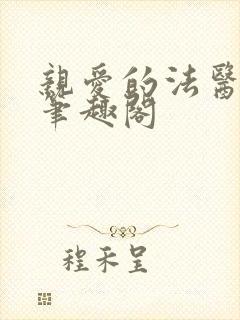 親愛的法醫
筆趣閣
程禾呈